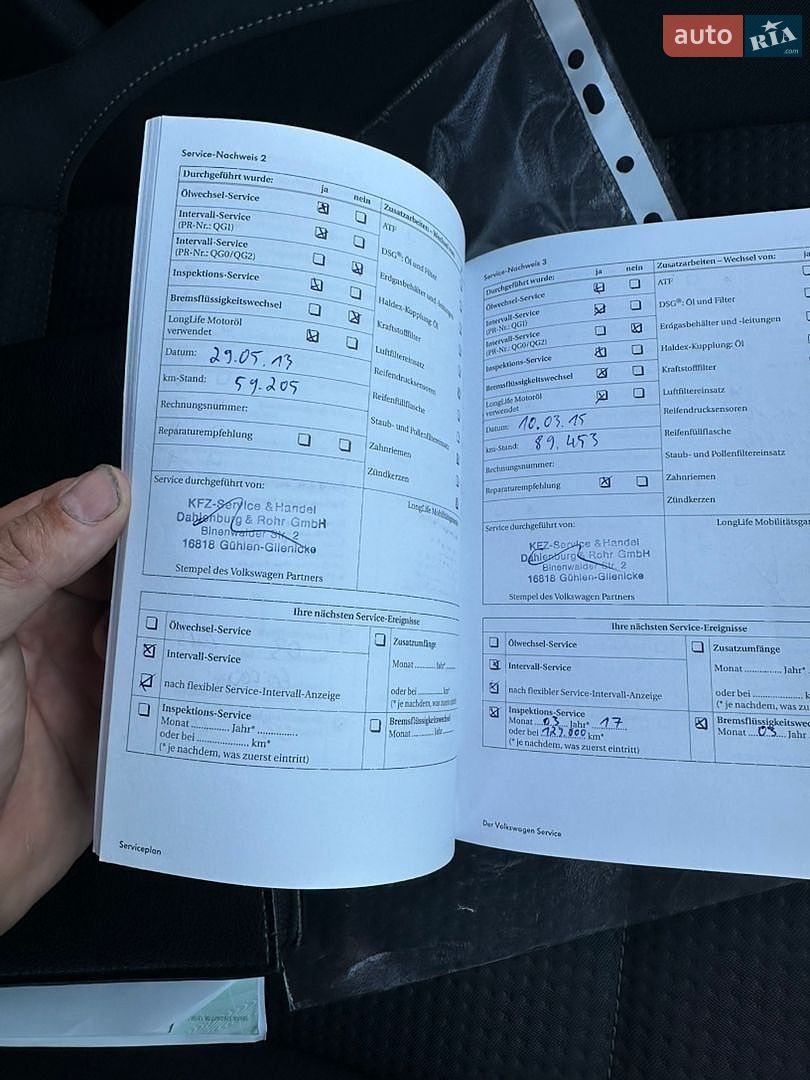 auto
RIA
.com
Service-Nachweis 2
Durchgeführt wurde:
ja
nein
Zusatzarbeiten – Wechsel
Ölwechsel-Service
ATF
Intervall-Service
(PR-Nr.: QG1)
DSG®: Öl und Filter
Intervall-Service
(PR-Nr.: QG0/QG2)
Erdgasbehälter und -leitungen
Inspektions-Service
Haldex-Kupplung: Öl
Bremsflüssigkeitswechsel
Kraftstofffilter
LongLife Motoröl
verwendet
Luftfiltereinsatz
Datum: 29.05.13
Reifendrucksensoren
km-Stand: 59.205
Reifenfüllflasche
Rechnungsnummer:
Staub- und Pollenfiltereinsatz
Reparaturempfehlung
Zahnriemen
Zündkerzen
Service durchgeführt von:
KFZ-Service & Handel
Dahlenburg & Rohr GmbH
Binenwalder Str. 2
16818 Gühlen-Glienicke
Stempel des Volkswagen Partners
Ihre nächsten Service-Ereignisse
Ölwechsel-Service
Zusatzumfänge
Intervall-Service
Monat ............ Jahr*
nach flexibler Service-Intervall-Anzeige
oder bei ............ km*
(* je nachdem, was
Inspektions-Service
Monat ............ Jahr* ............
oder bei ............ km*
(* je nachdem, was zuerst eintritt)
Bremsflüssigkeitswechsel
Monat ............ Jahr
Serviceplan
Service-Nachweis 3
Durchgeführt wurde:
ja
nein
Zusatzarbeiten – Wechsel von:
ja
Ölwechsel-Service
ATF
Intervall-Service
(PR-Nr.: QG1)
DSG®: Öl und Filter
Intervall-Service
(PR-Nr.: QG0/QG2)
Erdgasbehälter und -leitungen
Inspektions-Service
Haldex-Kupplung: Öl
Bremsflüssigkeitswechsel
Kraftstofffilter
LongLife Motoröl
verwendet
Luftfiltereinsatz
Datum: 10.03.15
Reifendrucksensoren
km-Stand: 89.453
Reifenfüllflasche
Rechnungsnummer:
Staub- und Pollenfiltereinsatz
Reparaturempfehlung
Zahnriemen
Zündkerzen
Service durchgeführt von:
LongLife
KFZ-Service & Handel
Dahlenburg & Rohr GmbH
Binenwalder Str. 2
16818 Gühlen-Glienicke
Stempel des Volkswagen Partners
Ihre nächsten Service-Ereignisse
Ölwechsel-Service
Zusatzumfänge
Intervall-Service
Monat ............ Jahr*
nach flexibler Service-Intervall-Anzeige
oder bei ............
(* je nachdem, was zuerst
Inspektions-Service
Monat 03 Jahr* 17
oder bei km*
(* je nachdem, was zuerst eintritt)
Monat 03 Jahr
Der Volkswagen Service